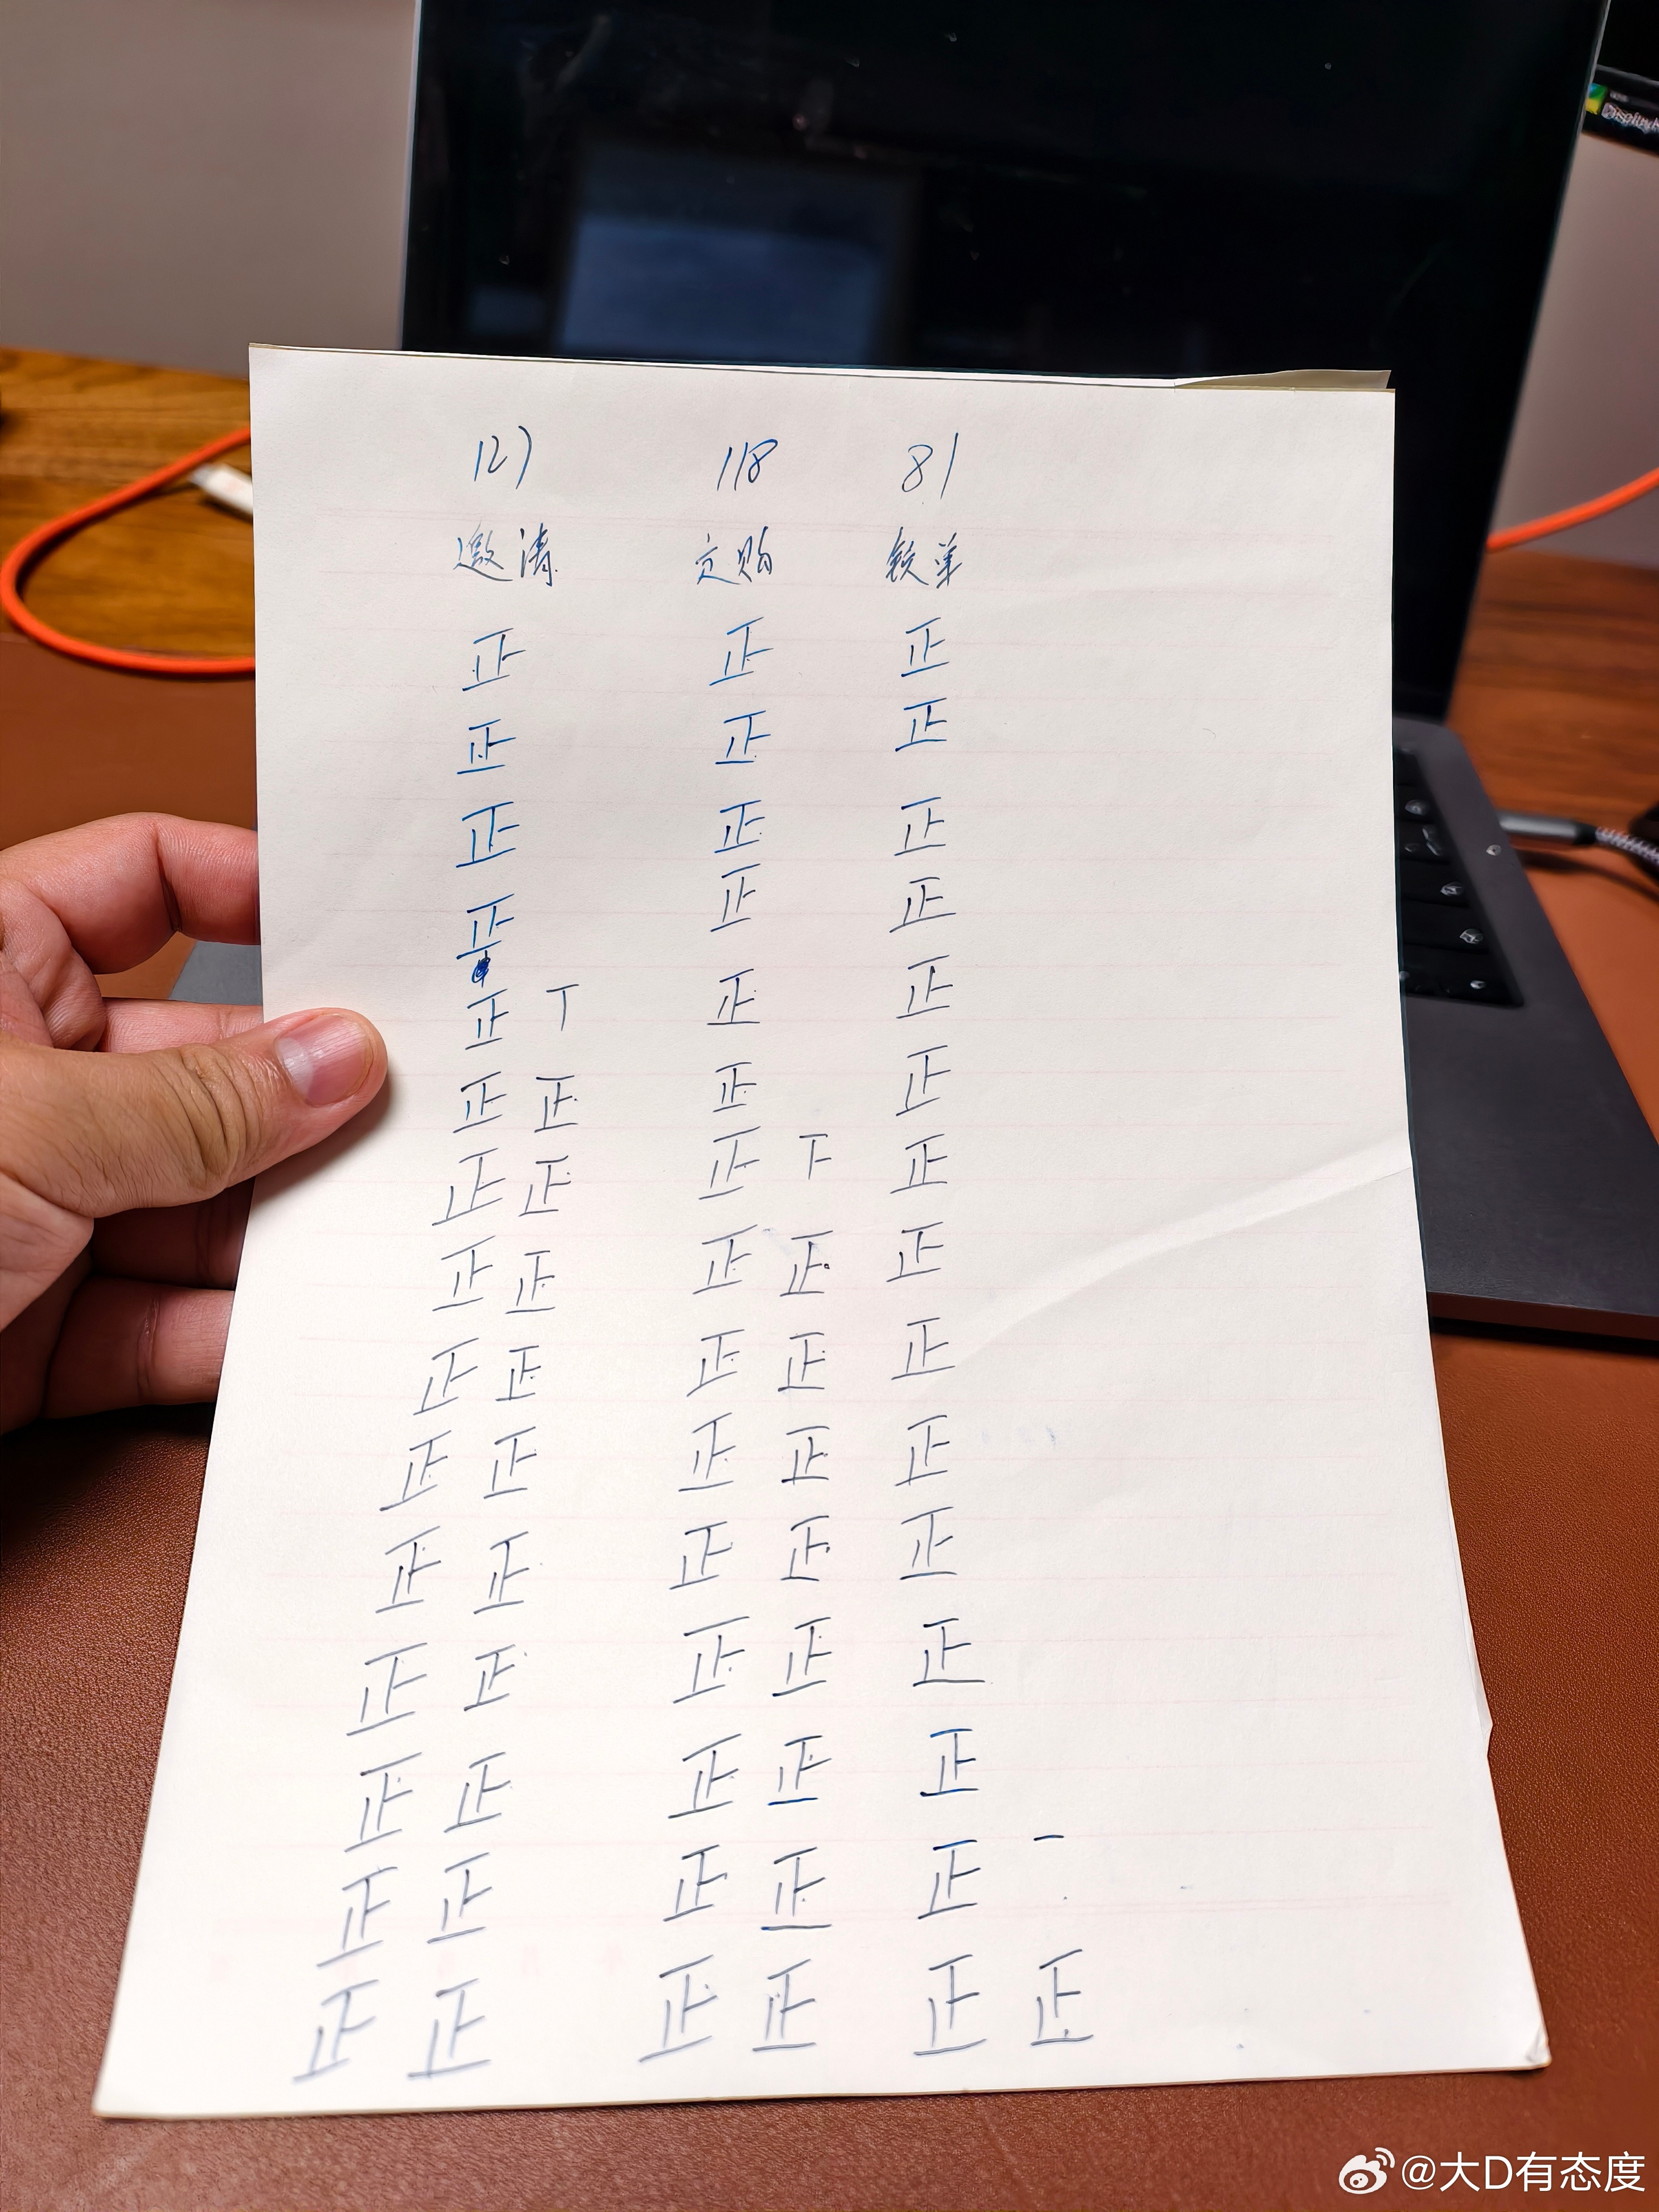 127 118 81
邀请 定购 锁单
正 正 正
正 正 正
正 正 正
正 正 正
正 丅 正 正
正 正 正 正
正 正 正 下 正
正 正 正 正 正
正 正 正 正 正
正 正 正 正 正
正 正 正 正 正
正 正 正 正 正
正 正 正 正 正
正 正 正 正 正 一
正 正 正 正 正 正
@大D有态度